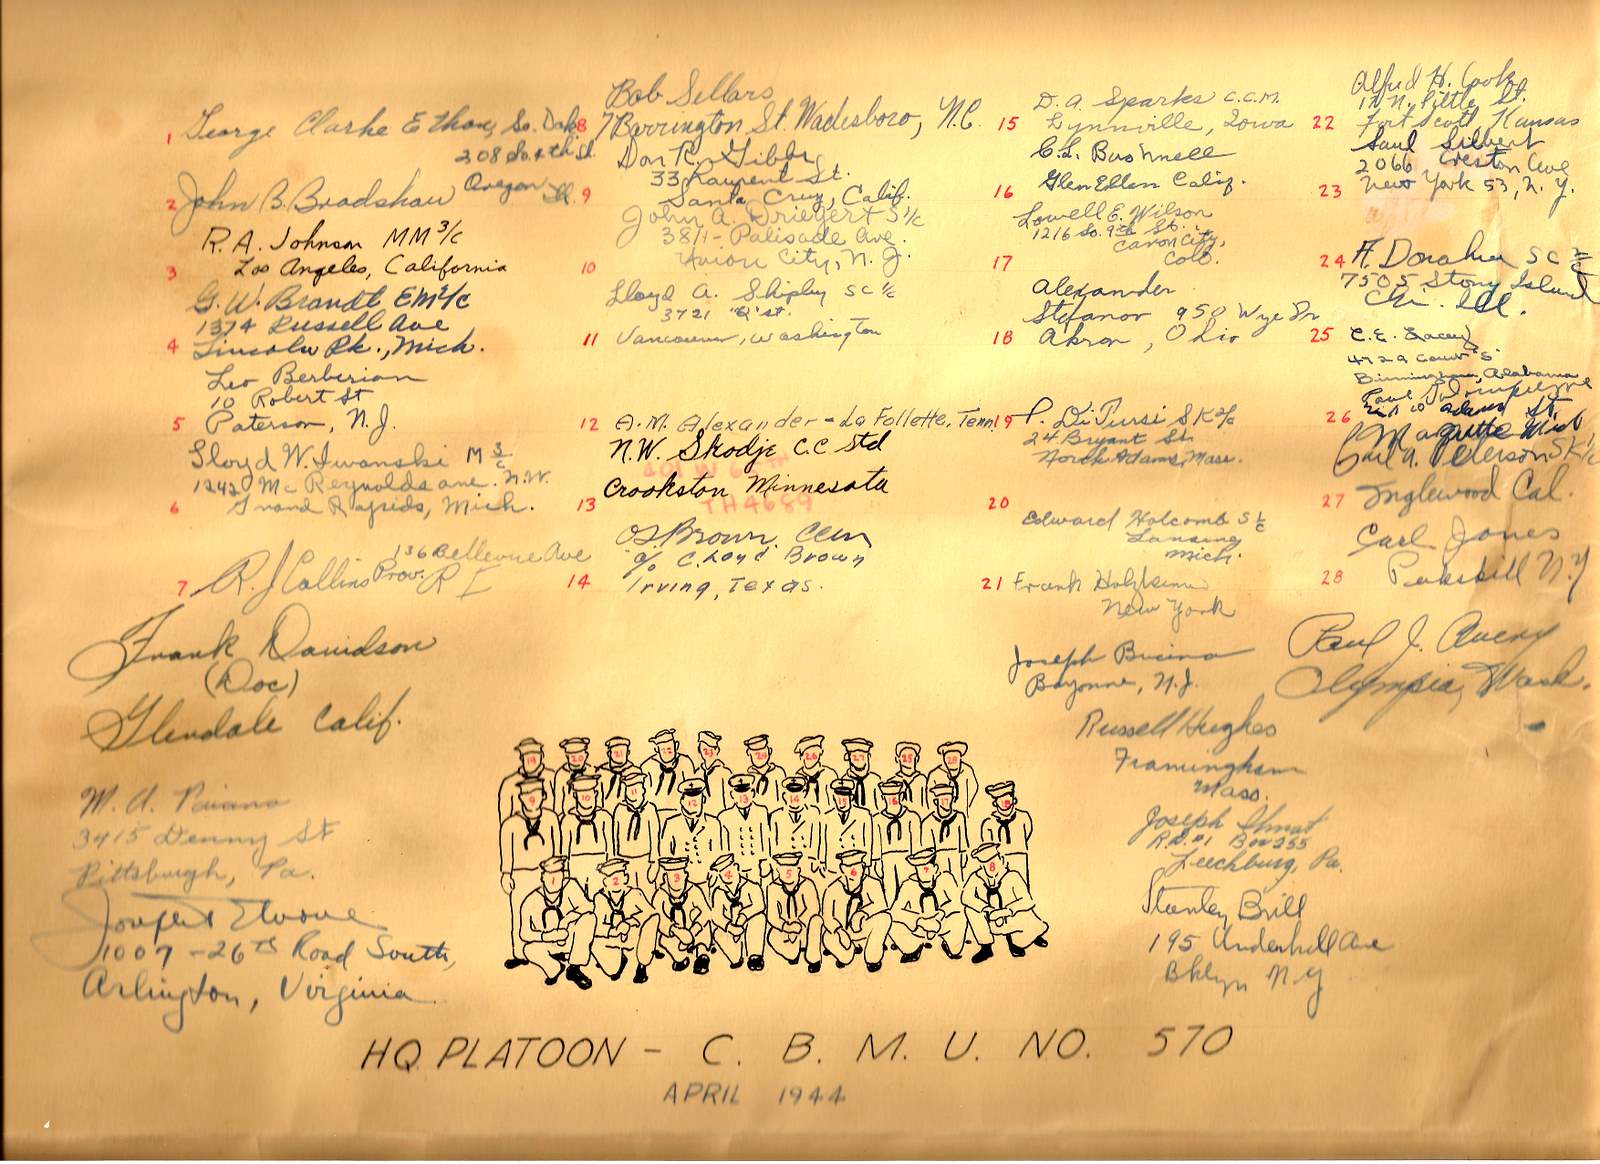 1 George Clarke Ethan, So. Dak.
208 So. 4th St.
Oregon Ill.
2 John B. Bradshaw
R. A. Johnson MM 3/c
3 Los Angeles, California
G. W. Brandt EM 2/c
1374 Russell Ave
4 Lincoln Pk., Mich.
Leo Berberian
10 Robert St
5 Paterson, N.J.
Lloyd W. Iwanski M 3/c
1242 Mc Reynolds ave. N.W.
6 Grand Rapids, Mich.
136 Bellevue Ave
7 R. J. Collins Prov. R I
Frank Davidson
(Doc)
Glendale Calif.
M. A.
3415 Denny St
Pittsburgh, Pa.
Joseph
1007 - 26th Road South,
Arlington, Virginia
Bob Sellars
8 7 Barrington St. Wadesboro, N.C.
Don R. Gibbs
33 Laurent St.
9 Santa Cruz, Calif.
John A. Driegert S 1/c
3811 - Palisade Ave.
10 Union City, N.J.
Lloyd A. Shipley SC 1/c
3721 "Q" St.
11 Vancouver, Washington
12 A. M. Alexander - La Follette, Tenn.
N.W. Skodje C.C Std
401 W 6
Crookston Minnesota
13 TH4689
O.S. Brown CCM
% C. Loyd Brown
14 Irving, Texas.
D. A. Sparks C.C.M.
15 Lynnville, Iowa
C. L. Bushnell
16 Glen Ellen Calif.
Lowell E. Wilson
1216 So. 9th St.
Canon City,
17 Colo.
Alexander
Stefanov 950 Wye Dr
18 Akron, Ohio
19 P. DiTursi SK 2/c
24 Bryant St.
North Adams, Mass.
20
Edward Holcomb S 1/c
Lansing
Mich.
21 Frank
New York
Joseph
Bayonne, N.J.
Russell Hughes
Framingham
Mass.
Joseph
R.D. #1 Box 255
Leechburg, Pa.
Stanley Brill
195 Underhill Ave
Bklyn N Y
Alfred H. Cook
12 N. Little St.
22 Fort Scott Kansas
Saul Silbert
2066 Creston Ave
23 New York 53, N.Y.
24 A. Donahue SC 2/c
7505 Stony Island
Chi. Ill.
25 C. E. Lacey
Birmingham, Alabama
Paul
26 Adams St.
Marquette Mich
Carl A. Peterson SK 1/c
27 Inglewood Cal.
Carl Jones
28 Peekskill N.Y
Paul J. Avery
Olympia, Wash.
19 20 21 22 23 24 26 27 25 28
9 10 11 12 13 14 15 16 17 18
1 2 3 4 5 6 7 8
HQ PLATOON - C. B. M. U. NO. 570
APRIL 1944